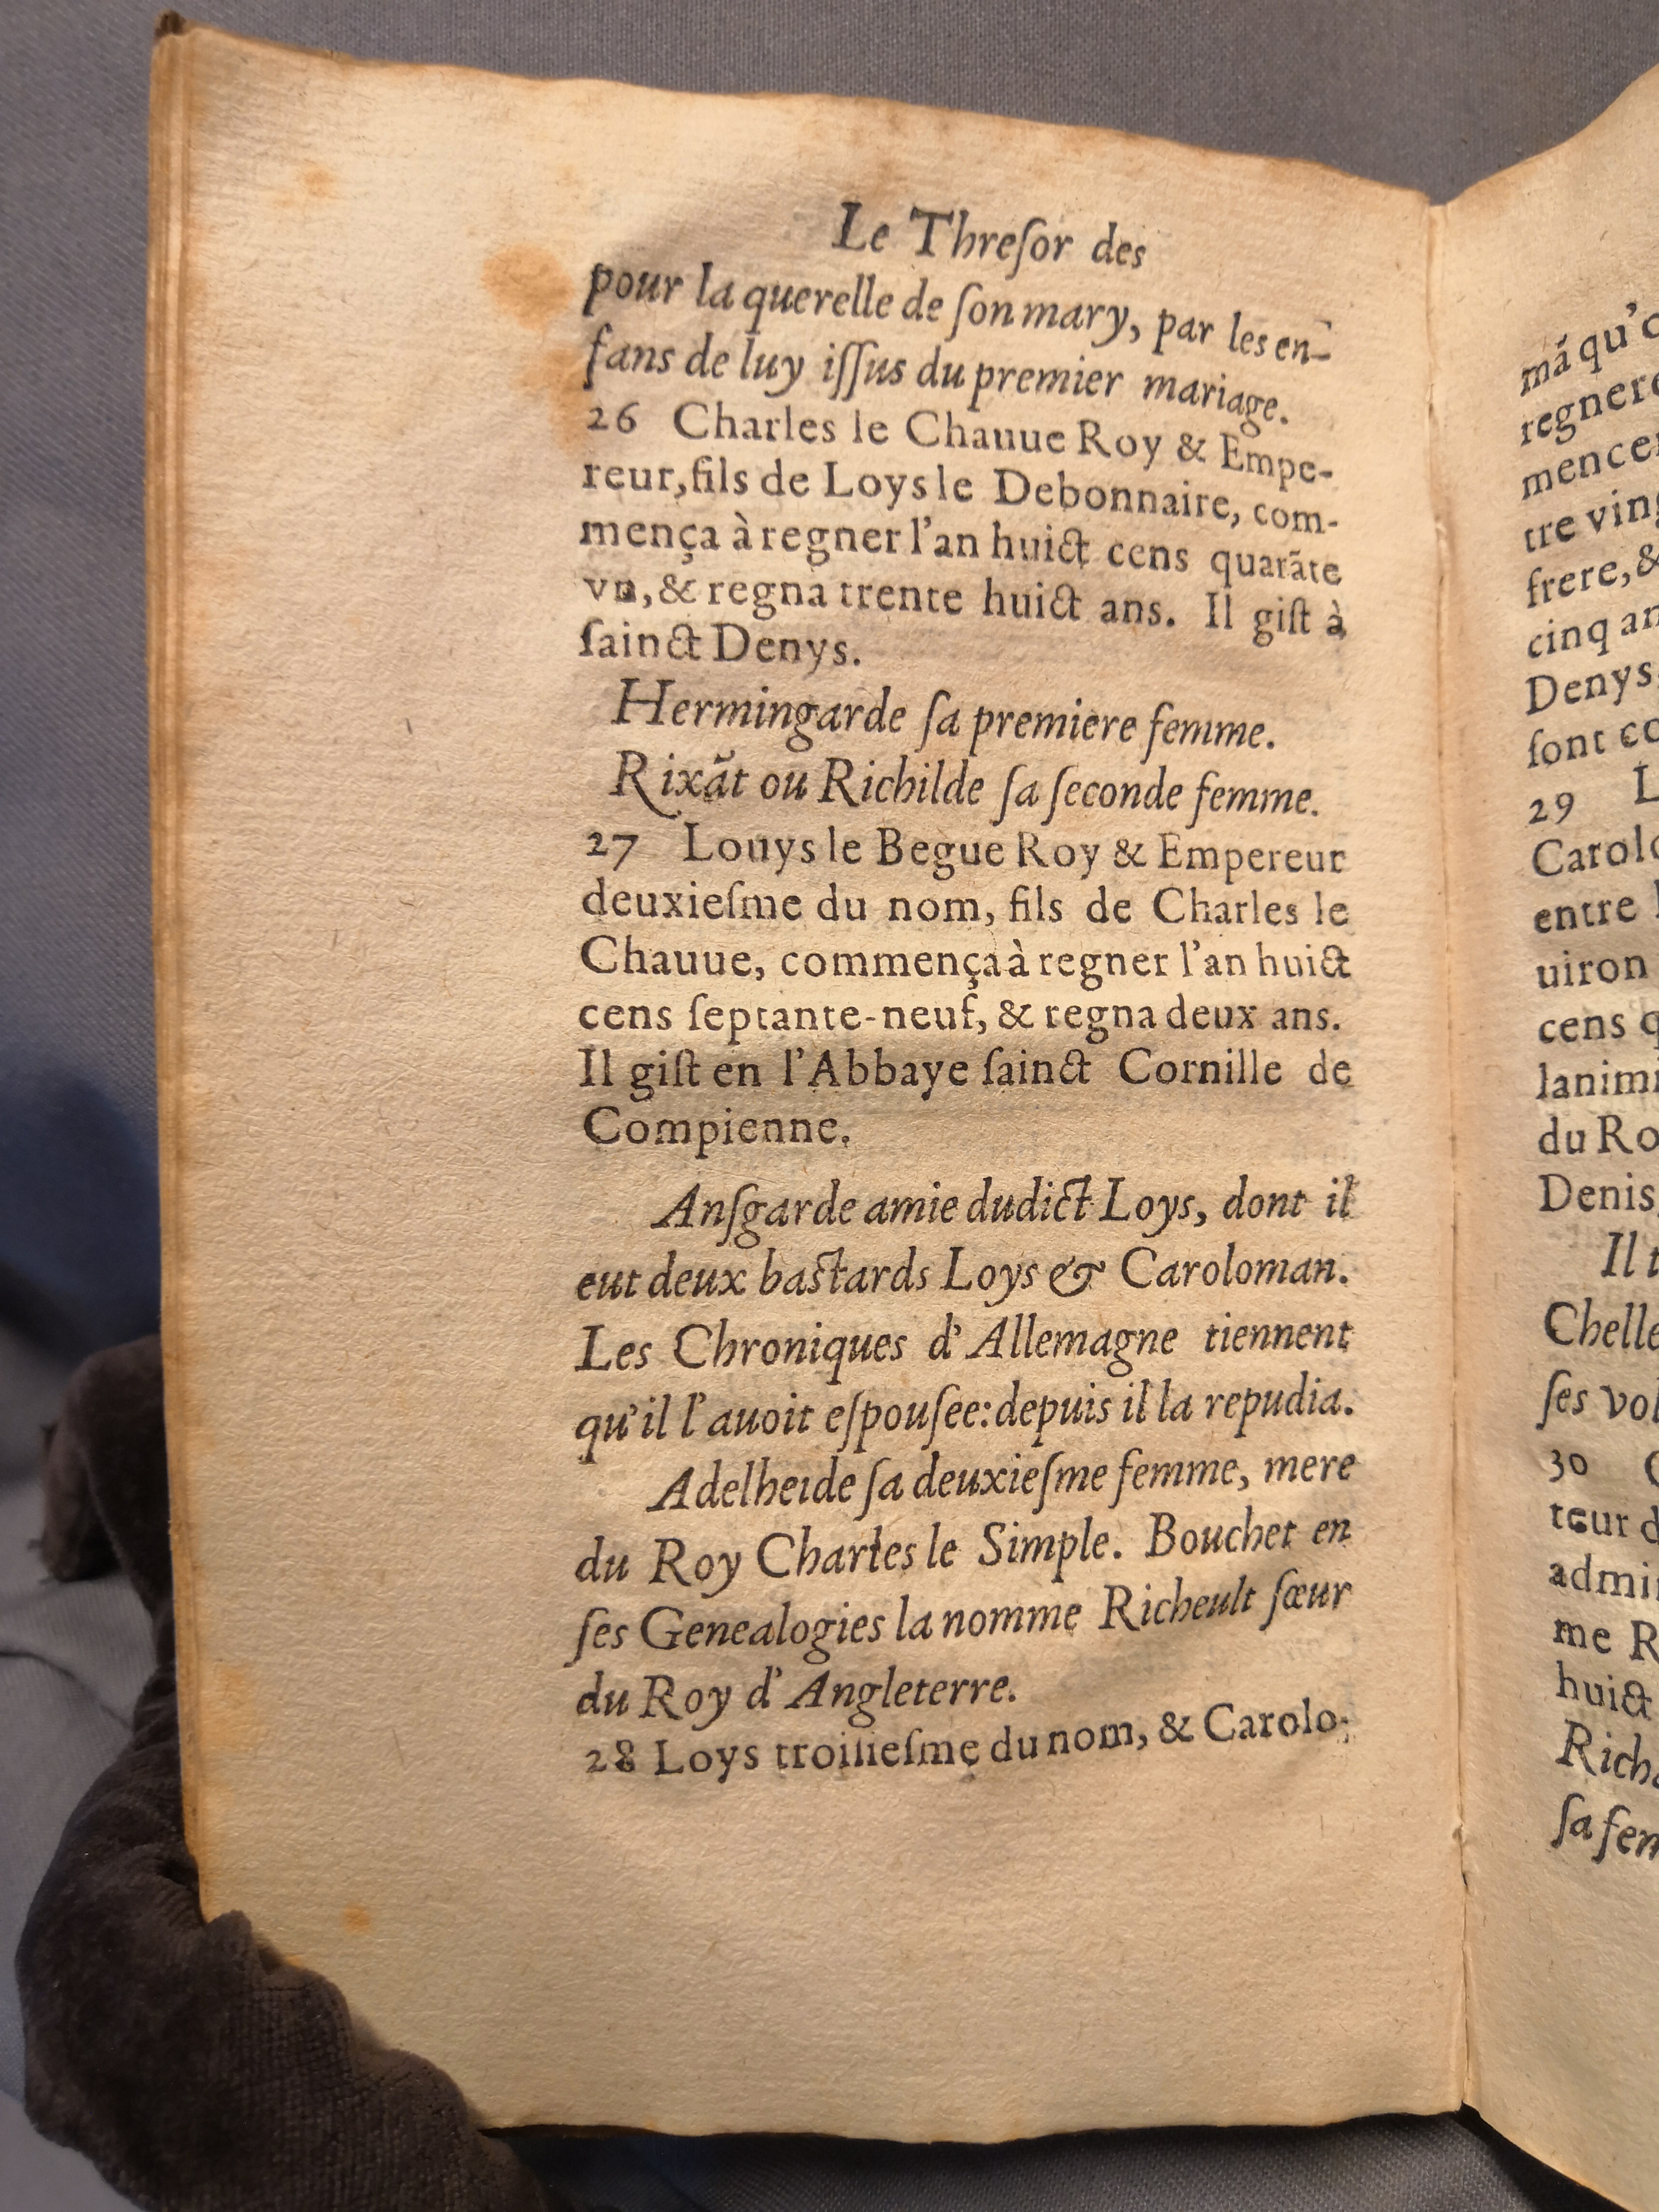 Le Threſor des
pour la querelle de ſon mary, par les en-
fans de luy iſſus du premier mariage.
26 Charles le Chauue Roy & Empe-
reur, fils de Loys le Debonnaire, com-
mença à regner l'an huict cens quarãte
vn, & regna trente huict ans. Il giſt à
ſainct Denys.
Hermingarde ſa premiere femme.
Rixãt ou Richilde ſa ſeconde femme.
27 Louys le Begue Roy & Empereur
deuxieſme du nom, fils de Charles le
Chauue, commença à regner l'an huict
cens ſeptante-neuf, & regna deux ans.
Il giſt en l'Abbaye ſainct Cornille de
Compienne.
Anſgarde amie dudict Loys, dont il
eut deux baſtards Loys & Caroloman.
Les Chroniques d'Allemagne tiennent
qu'il l'auoit eſpouſee: depuis il la repudia.
Adelheide ſa deuxieſme femme, mere
du Roy Charles le Simple. Bouchet en
ſes Genealogies la nomme Richeult ſœur
du Roy d'Angleterre.
28 Loys troiſieſme du nom, & Carolo-
mã qu'
regner
mence
tre vin
frere, &
cinq an
Denys
ſont co
29 L
Carolo
entre
uiron
cens q
lanim
du Ro
Denis
Il t
Chelle
ſes vol
30
teur d
admi
me R
huict
Rich
ſa fem